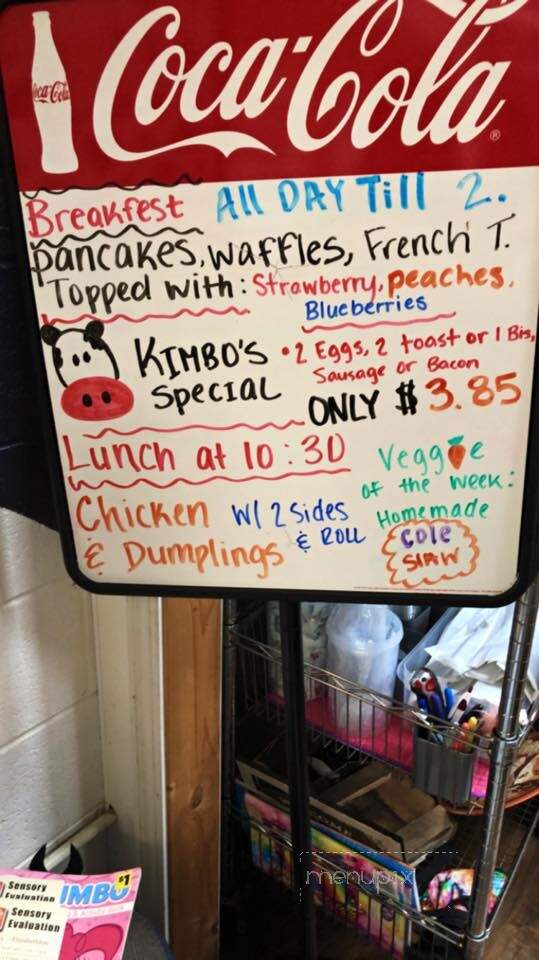 Coca-Cola
Coca-Cola
Breakfest All DAY Till 2.
pancakes, waffles, French T.
Topped with: Strawberry, peaches,
Blueberries
KIMBO'S
Special
• 2 Eggs, 2 toast or 1 Bis,
Sausage or Bacon
ONLY $3.85
Lunch at 10:30
Chicken w/ 2 Sides
& Dumplings & Roll
Veggie
of the week:
Homemade
Cole
Slaw
Sensory
Evaluation
Sensory
Evaluation
$1
menupix